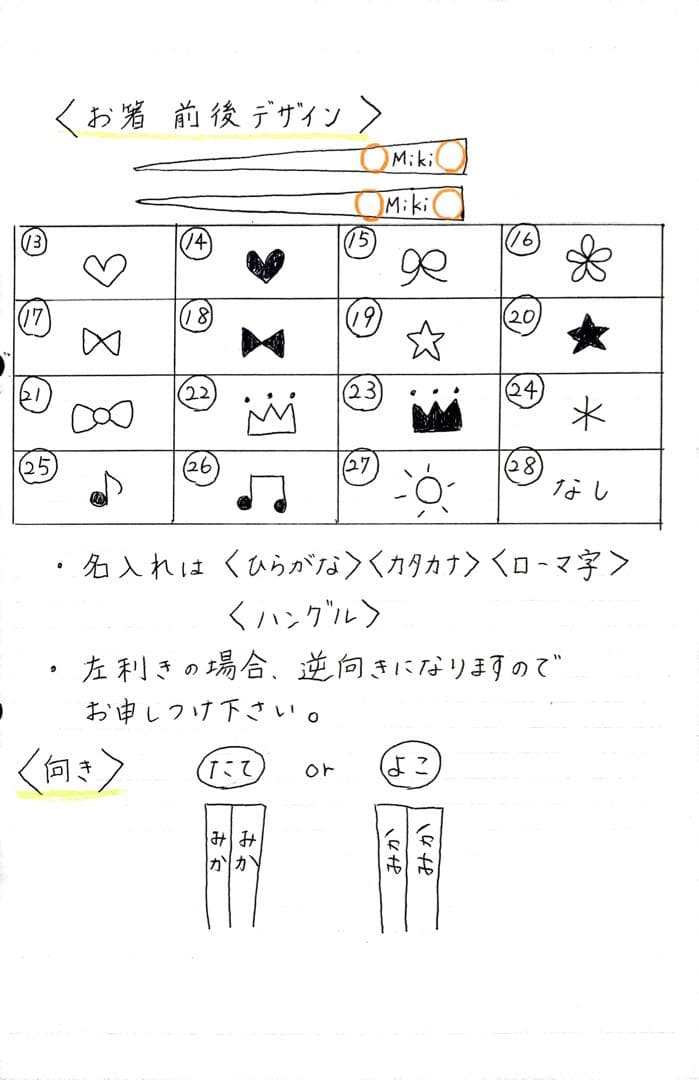 〈お箸 前後デザイン〉
Miki
Miki
⑬ ⑭ ⑮ ⑯
⑰ ⑱ ⑲ ⑳
㉑ ㉒ ㉓ ㉔
㉕ ㉖ ㉗ ㉘ なし
・名入れは〈ひらがな〉〈カタカナ〉〈ローマ字〉
〈ハングル〉
・左利きの場合、逆向きになりますので
お申しつけ下さい。
〈向き〉 たて or よこ
みか みか